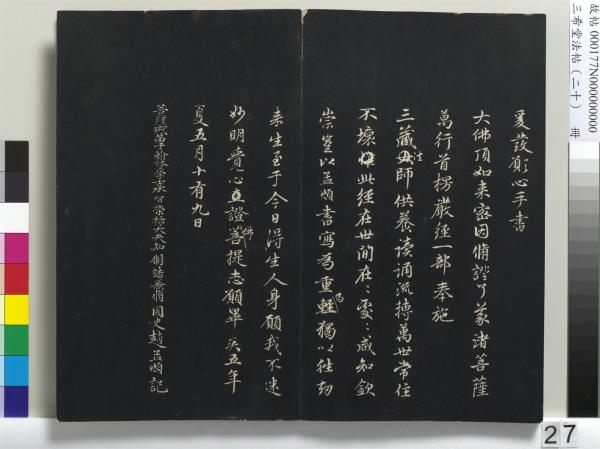 爰發願心手書
大佛頂如来密因脩證了義諸菩薩
萬行首楞嚴經一部奉施
三藏法師供養讀誦流摶萬世常住
不壞此經在世間在〻處〻咸知欽
崇豈以孟頫書寫為重輕獨以往劫
来生至于今日得生人身願我不迷
妙明覺心直證菩提志願畢矣五年
夏五月十有九日
菩薩戒弟子翰林學士承旨榮祿大夫知制誥兼脩國史趙孟頫記
故帖 000177N000000000
三希堂法帖（二十） 冊
27